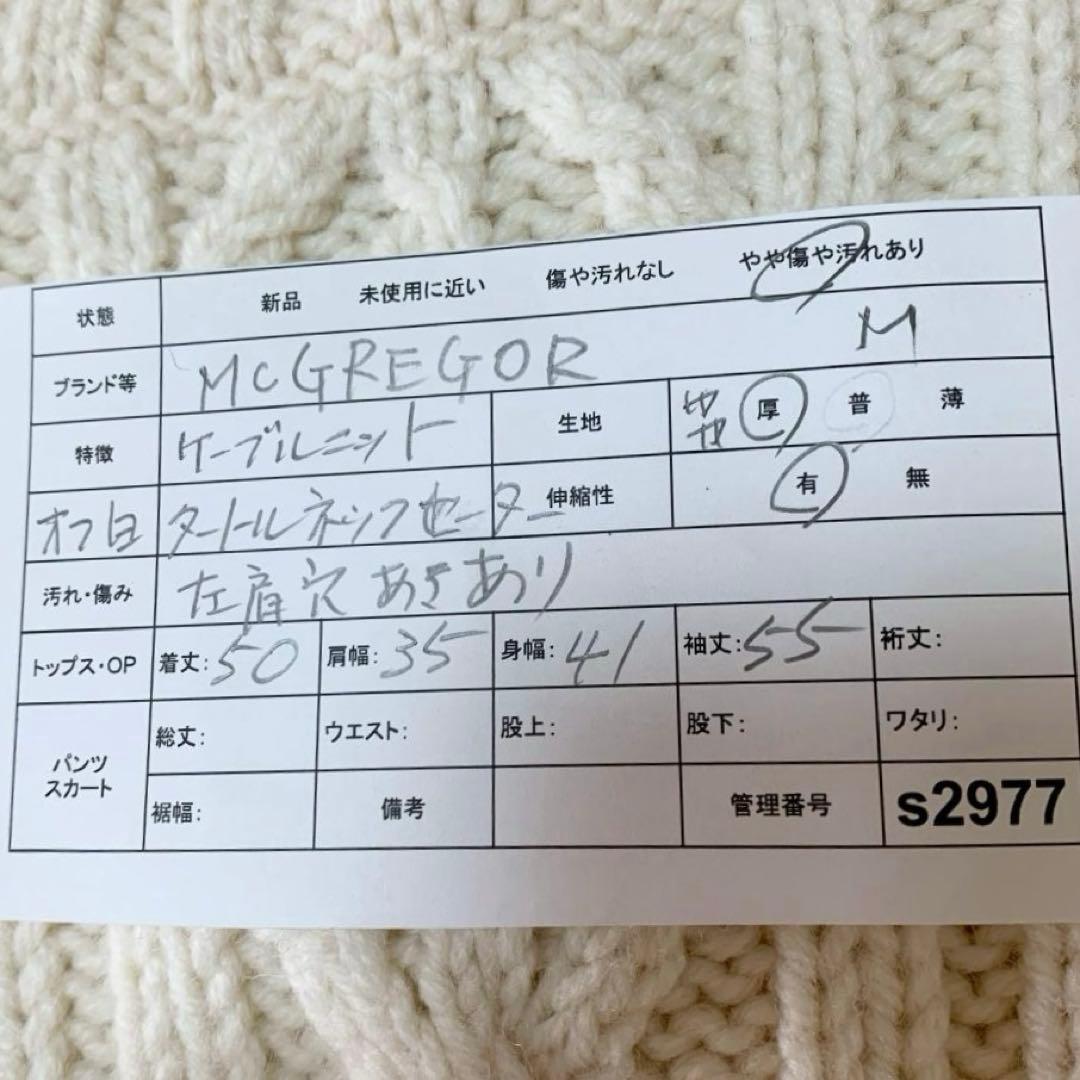 状態 新品 未使用に近い 傷や汚れなし やや傷や汚れあり
ブランド等 McGREGOR M
特徴 ケーブルニット 生地 やや 厚 普 薄
オフ白 タートルネックセーター 伸縮性 有 無
汚れ・傷み 左肩穴あきあり
トップス・OP 着丈:50 肩幅:35 身幅:41 袖丈:55 裄丈:
パンツ スカート 総丈: ウエスト: 股上: 股下: ワタリ:
裾幅: 備考 管理番号 s2977